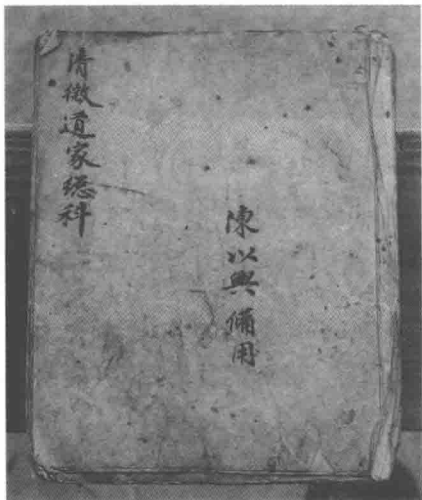 清微道家緫科
陳以興備用